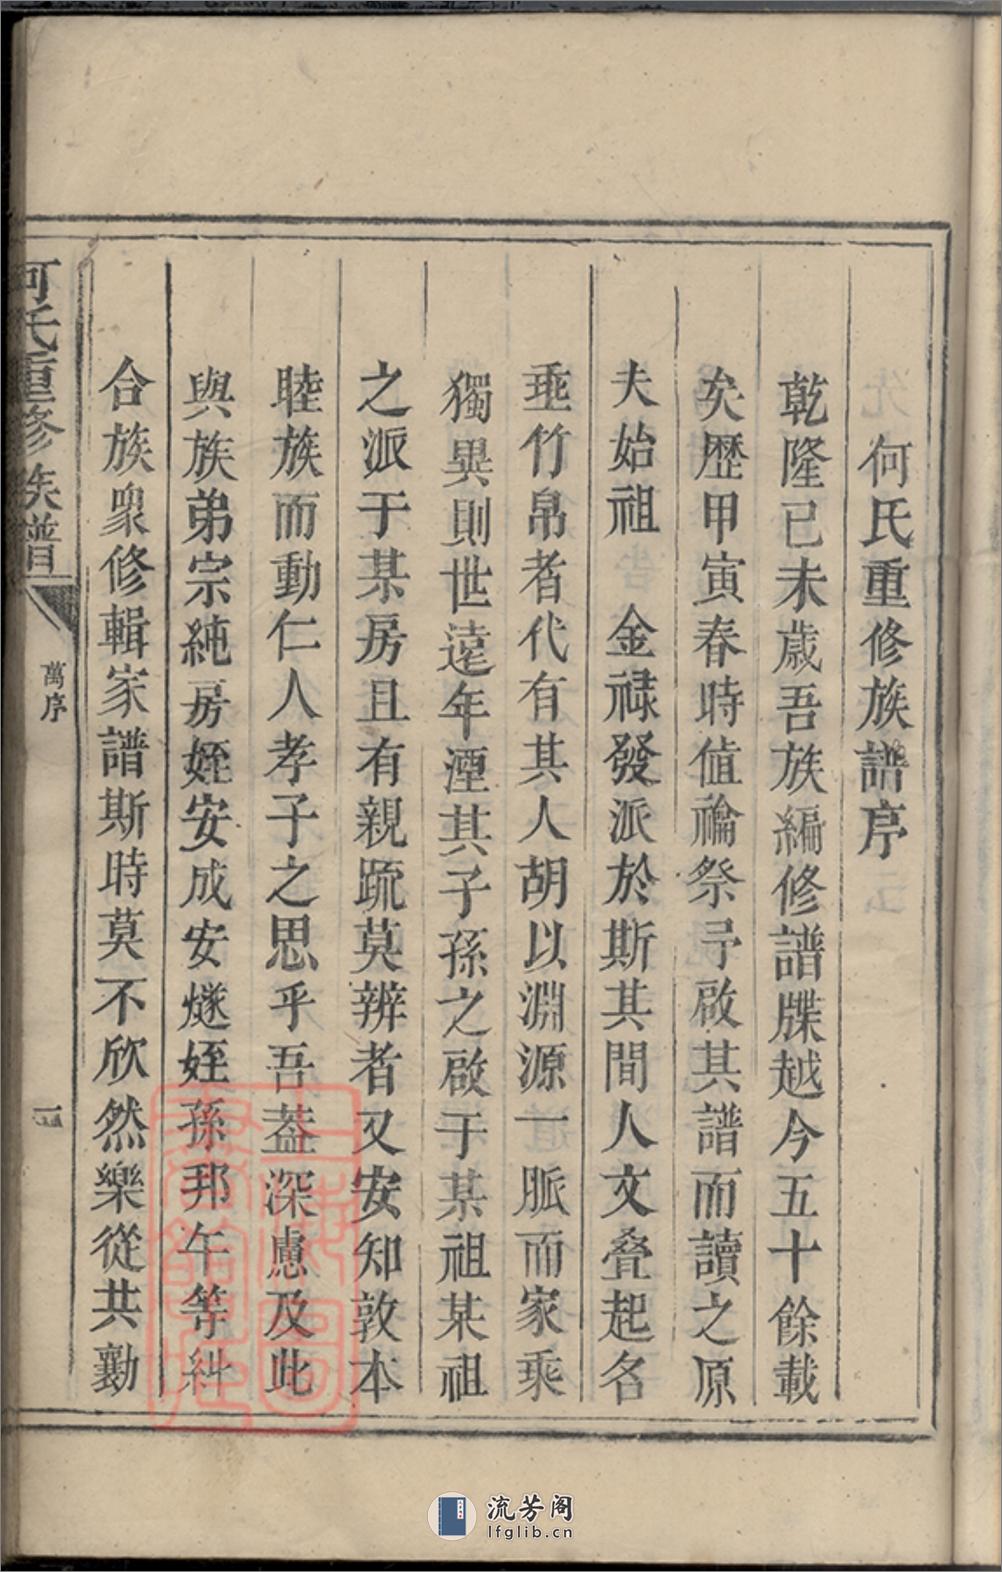 何氏重修族譜序
乾隆已未歲吾族編修譜牒越今五十餘載
矣歷甲寅春時值禴祭予啟其譜而讀之原
夫始祖 金祿發派於斯其間人文叠起名
垂竹帛者代有其人胡以淵源一脈而家乘
獨異則世遠年湮其子孫之啟于某祖某祖
之派于某房且有親踈莫辨者又安知敦本
睦族而動仁人孝子之思乎吾葢深慮及此
與族弟宗純房姪安成安燧姪孫邦午等糾
合族衆修輯家譜斯時莫不欣然樂從共勷
河氏重修族譜
萬序
一
上海圖書館藏
流芳阁
lfglib.cn